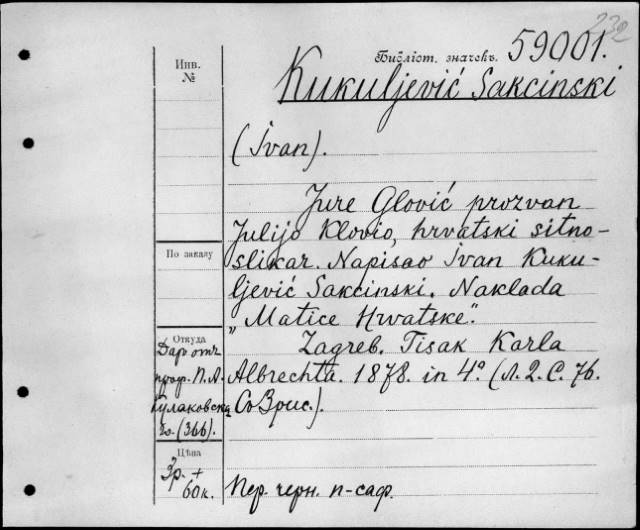 232
Библіот. значекъ. 59001.
Инв.
№
Kukuljević Sakcinski
(Ivan).
Jure Glović prozvan
Julijo Klovio, hrvatski sitno-
slikar. Napisao Ivan Kuku-
ljević Sakcinski. Naklada
„Matice Hrvatske".
Zagreb. Tisak Karla
Albrechta. 1878. in 4° (л. 2. С. 76.
Со 3 рис.).
По заказу
Откуда
Даръ отъ
проф. П. А.
Кулаковска
го. (366).
Цѣна
3р. +
60к.
Пер. черн. п-саф.